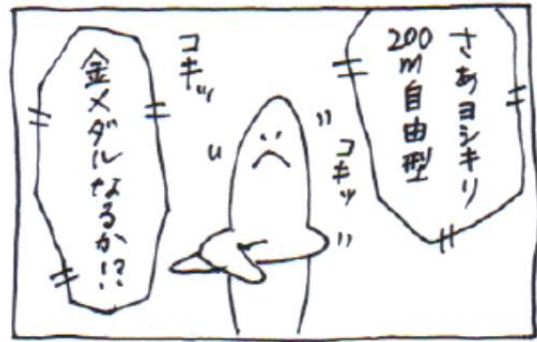 さあヨシキリ
200m自由型
コキッ
コキッ
金メダルなるか!?